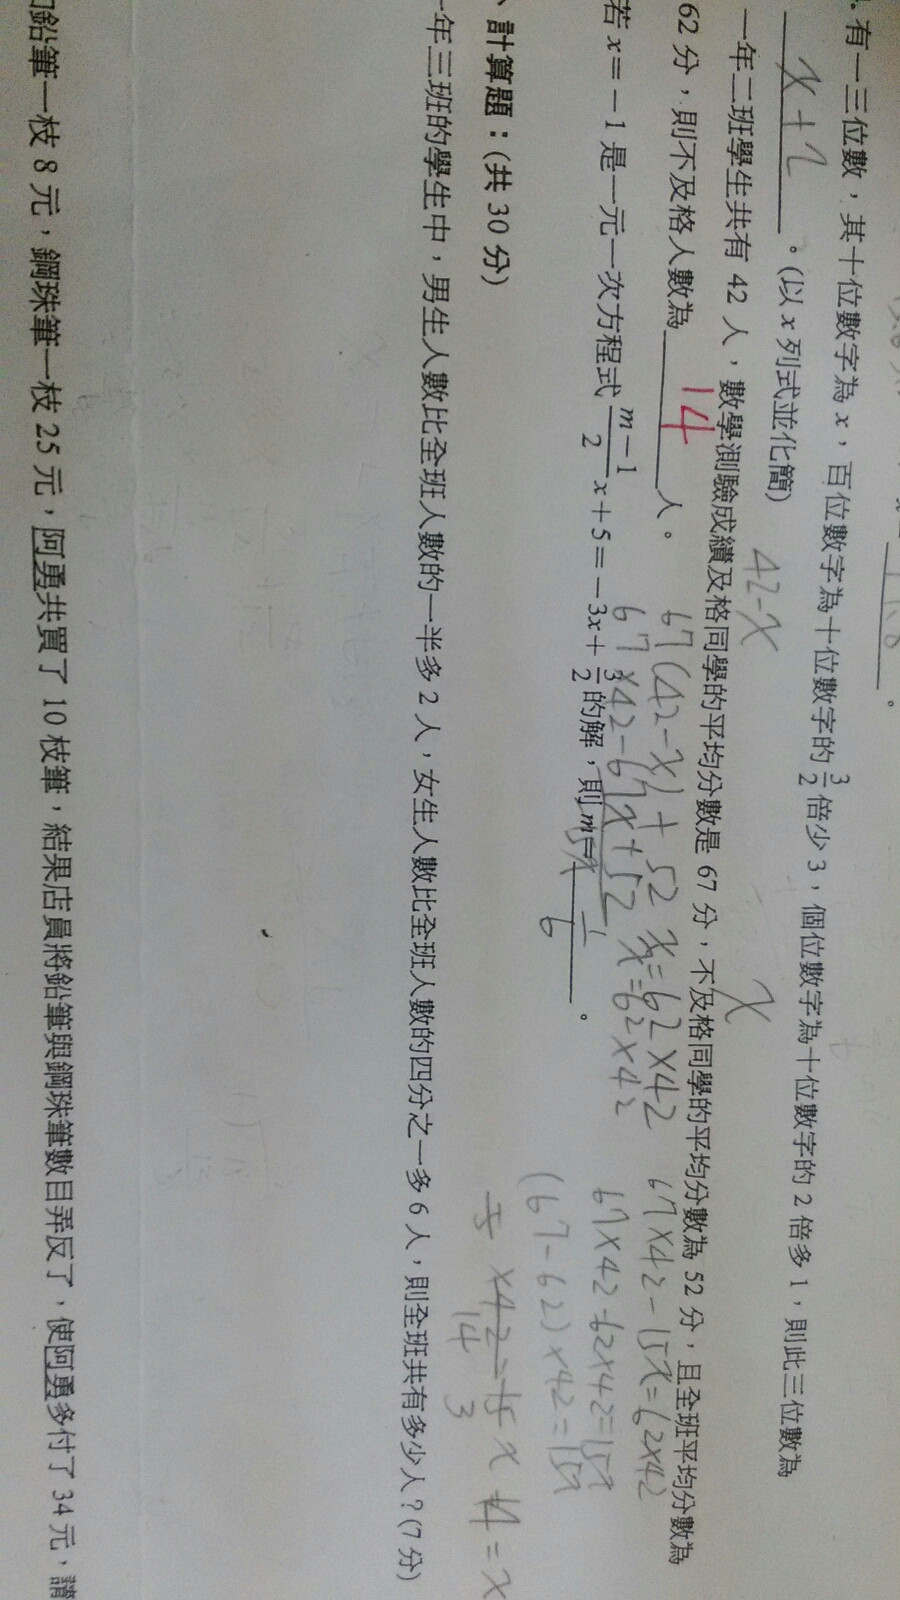 有一三位數，其十位數字為 x，百位數字為十位數字的 3/2 倍少 3，個位數字為十位數字的 2 倍多 1，則此三位數為
x+2 。(以 x 列式並化簡)
42-x
x
一年二班學生共有 42 人，數學測驗成績及格同學的平均分數是 67 分，不及格同學的平均分數為 52 分，且全班平均分數為
62 分，則不及格人數為 14 人。
67(42-x)+52x=62×42
67×42-67x+52x=62×42
67×42-15x=62×42
67×42-62×42=15x
(67-62)×42=15x
若 x=－1 是一元一次方程式 m－1/2 x＋5＝－3x＋3/2 的解，則 m= 。
14=x
計算題：(共 30 分)
一年三班的學生中，男生人數比全班人數的一半多 2 人，女生人數比全班人數的四分之一多 6 人，則全班共有多少人？(7 分)
鉛筆一枝 8 元，鋼珠筆一枝 25 元，阿勇共買了 10 枝筆，結果店員將鉛筆與鋼珠筆數目弄反了，使阿勇多付了 34 元，請